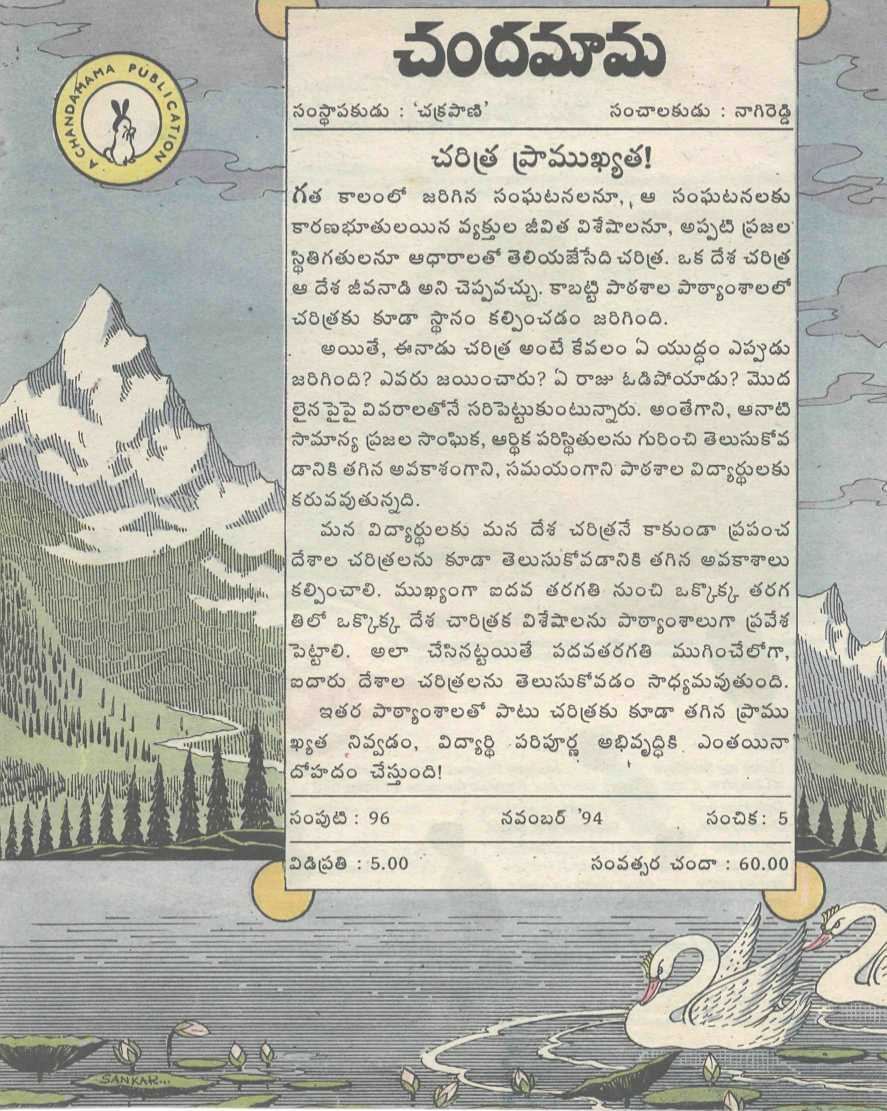 A CHANDAMAMA PUBLICATION
చందమామ
సంస్థాపకుడు : 'చక్రపాణి' సంచాలకుడు : నాగిరెడ్డి
చరిత్ర ప్రాముఖ్యత!
గత కాలంలో జరిగిన సంఘటనలనూ, ఆ సంఘటనలకు
కారణభూతులయిన వ్యక్తుల జీవిత విశేషాలనూ, అప్పటి ప్రజల
స్థితిగతులనూ ఆధారాలతో తెలియజేసేది చరిత్ర. ఒక దేశ చరిత్ర
ఆ దేశ జీవనాడి అని చెప్పవచ్చు. కాబట్టి పాఠశాల పాఠ్యాంశాలలో
చరిత్రకు కూడా స్థానం కల్పించడం జరిగింది.
అయితే, ఈనాడు చరిత్ర అంటే కేవలం ఏ యుద్ధం ఎప్పుడు
జరిగింది? ఎవరు జయించారు? ఏ రాజు ఓడిపోయాడు? మొద
లైనపైపై వివరాలతోనే సరిపెట్టుకుంటున్నారు. అంతేగాని, ఆనాటి
సామాన్య ప్రజల సాంఘిక, ఆర్థిక పరిస్థితులను గురించి తెలుసుకోవ
డానికి తగిన అవకాశంగాని, సమయంగాని పాఠశాల విద్యార్థులకు
కరువవుతున్నది.
మన విద్యార్థులకు మన దేశ చరిత్రనే కాకుండా ప్రపంచ
దేశాల చరిత్రలను కూడా తెలుసుకోవడానికి తగిన అవకాశాలు
కల్పించాలి. ముఖ్యంగా ఐదవ తరగతి నుంచి ఒక్కొక్క తరగ
తిలో ఒక్కొక్క దేశ చారిత్రక విశేషాలను పాఠ్యాంశాలుగా ప్రవేశ
పెట్టాలి. అలా చేసినట్టయితే పదవతరగతి ముగించేలోగా,
ఐదారు దేశాల చరిత్రలను తెలుసుకోవడం సాధ్యమవుతుంది.
ఇతర పాఠ్యాంశాలతో పాటు చరిత్రకు కూడా తగిన ప్రాము
ఖ్యత నివ్వడం, విద్యార్థి పరిపూర్ణ అభివృద్ధికి ఎంతయినా
దోహదం చేస్తుంది!
సంపుటి : 96 నవంబర్ '94 సంచిక: 5
విడిప్రతి : 5.00 సంవత్సర చందా : 60.00
SANKAR...